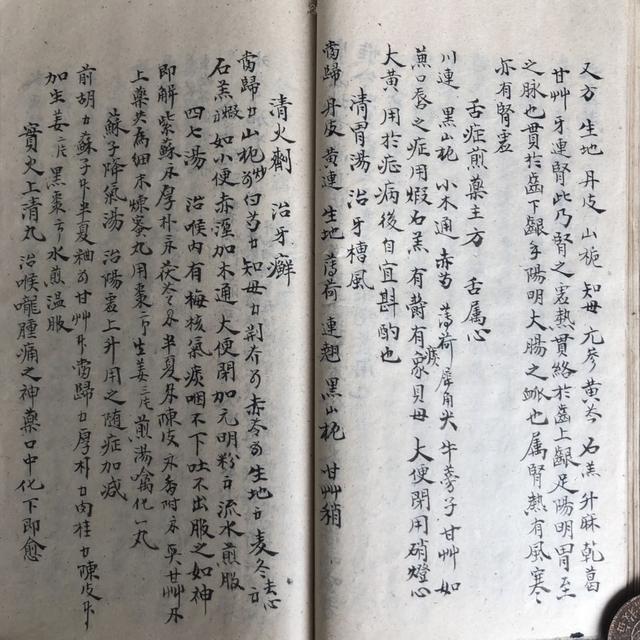 又方 生地 丹皮 山梔 知母 元參 黃芩 石羔 升麻 乾葛
甘艸 牙連腎此乃腎之虛熱貫絡於齒上齦足陽明胃至
之脉也貫於齒下齦手陽明大腸之脉也属腎熱有風寒
亦有腎虛
舌症煎藥主方 舌属心
川連 黑山梔 小木通 赤芍 薄荷 犀角尖 牛蒡子 甘艸 如
蕉口唇之症用煅石羔 有欝有痰家貝母 大便閉用硝燈心
大黃 用於症病後自宜斟酌也
清胃湯 治牙槽風
當歸 丹皮 黃連 生地 薄荷 連翹 黑山梔 甘艸稍
清火劑 治牙癬
當歸 山梔炒 白芍 知母 荆芥 赤苓 生地 麦冬去心
石羔煅 如小便赤澀加木通 大便閉加元明粉 流水煎服
四七湯 治喉内有梅核氣痰咽不下吐不出服之如神
即解紫蘇 厚朴 茯苓 半夏 陳皮 香附 甘艸
上藥共為細末煉蜜丸用棗 生姜 煎湯噙化一丸
蘇子降氣湯 治陽虛上升用之随症加减
前胡 蘇子 半夏 甘艸 當歸 厚朴 肉桂 陳皮
加生姜 黑棗 水煎温服
實火上清丸 治喉嚨腫痛之神藥口中化下即愈